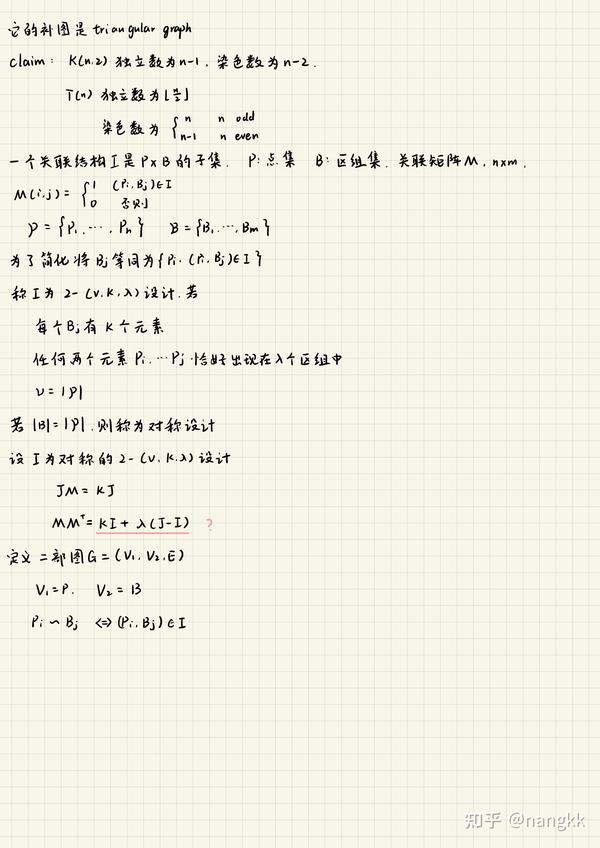 它的补图是 triangular graph
claim: K(n,2) 独立数为 n-1, 染色数为 n-2.
T(n) 独立数为 ⌊n/2⌋
染色数为 { n n odd
n-1 n even
一个关联结构 I 是 P×B 的子集. P: 点集 B: 区组集. 关联矩阵 M, n×m.
M(i,j) = { 1 (Pi,Bj)∈I
0 否则
P = {P1, ..., Pn} B = {B1, ..., Bm}
为了简化将 Bj 等同为 {Pi. (Pi,Bj)∈I}
称 I 为 2-(v,k,λ) 设计. 若
每个 Bj 有 k 个元素
任何两个元素 Pi, ... Pj 恰好出现在 λ 个区组中
v = |P|
若 |B| = |P|. 则称为对称设计
设 I 为对称的 2-(v,k,λ) 设计
JM = kJ
MMᵀ = kI + λ(J-I) ?
定义二部图 G = (V1, V2, E)
V1 = P. V2 = B
Pi ~ Bj <=> (Pi,Bj)∈I
知乎 @nangkk